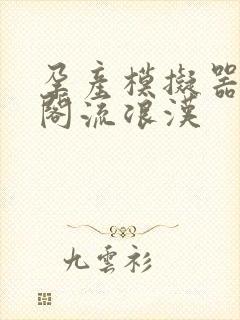 孕產模擬器
閣流浪漢
九雲衫